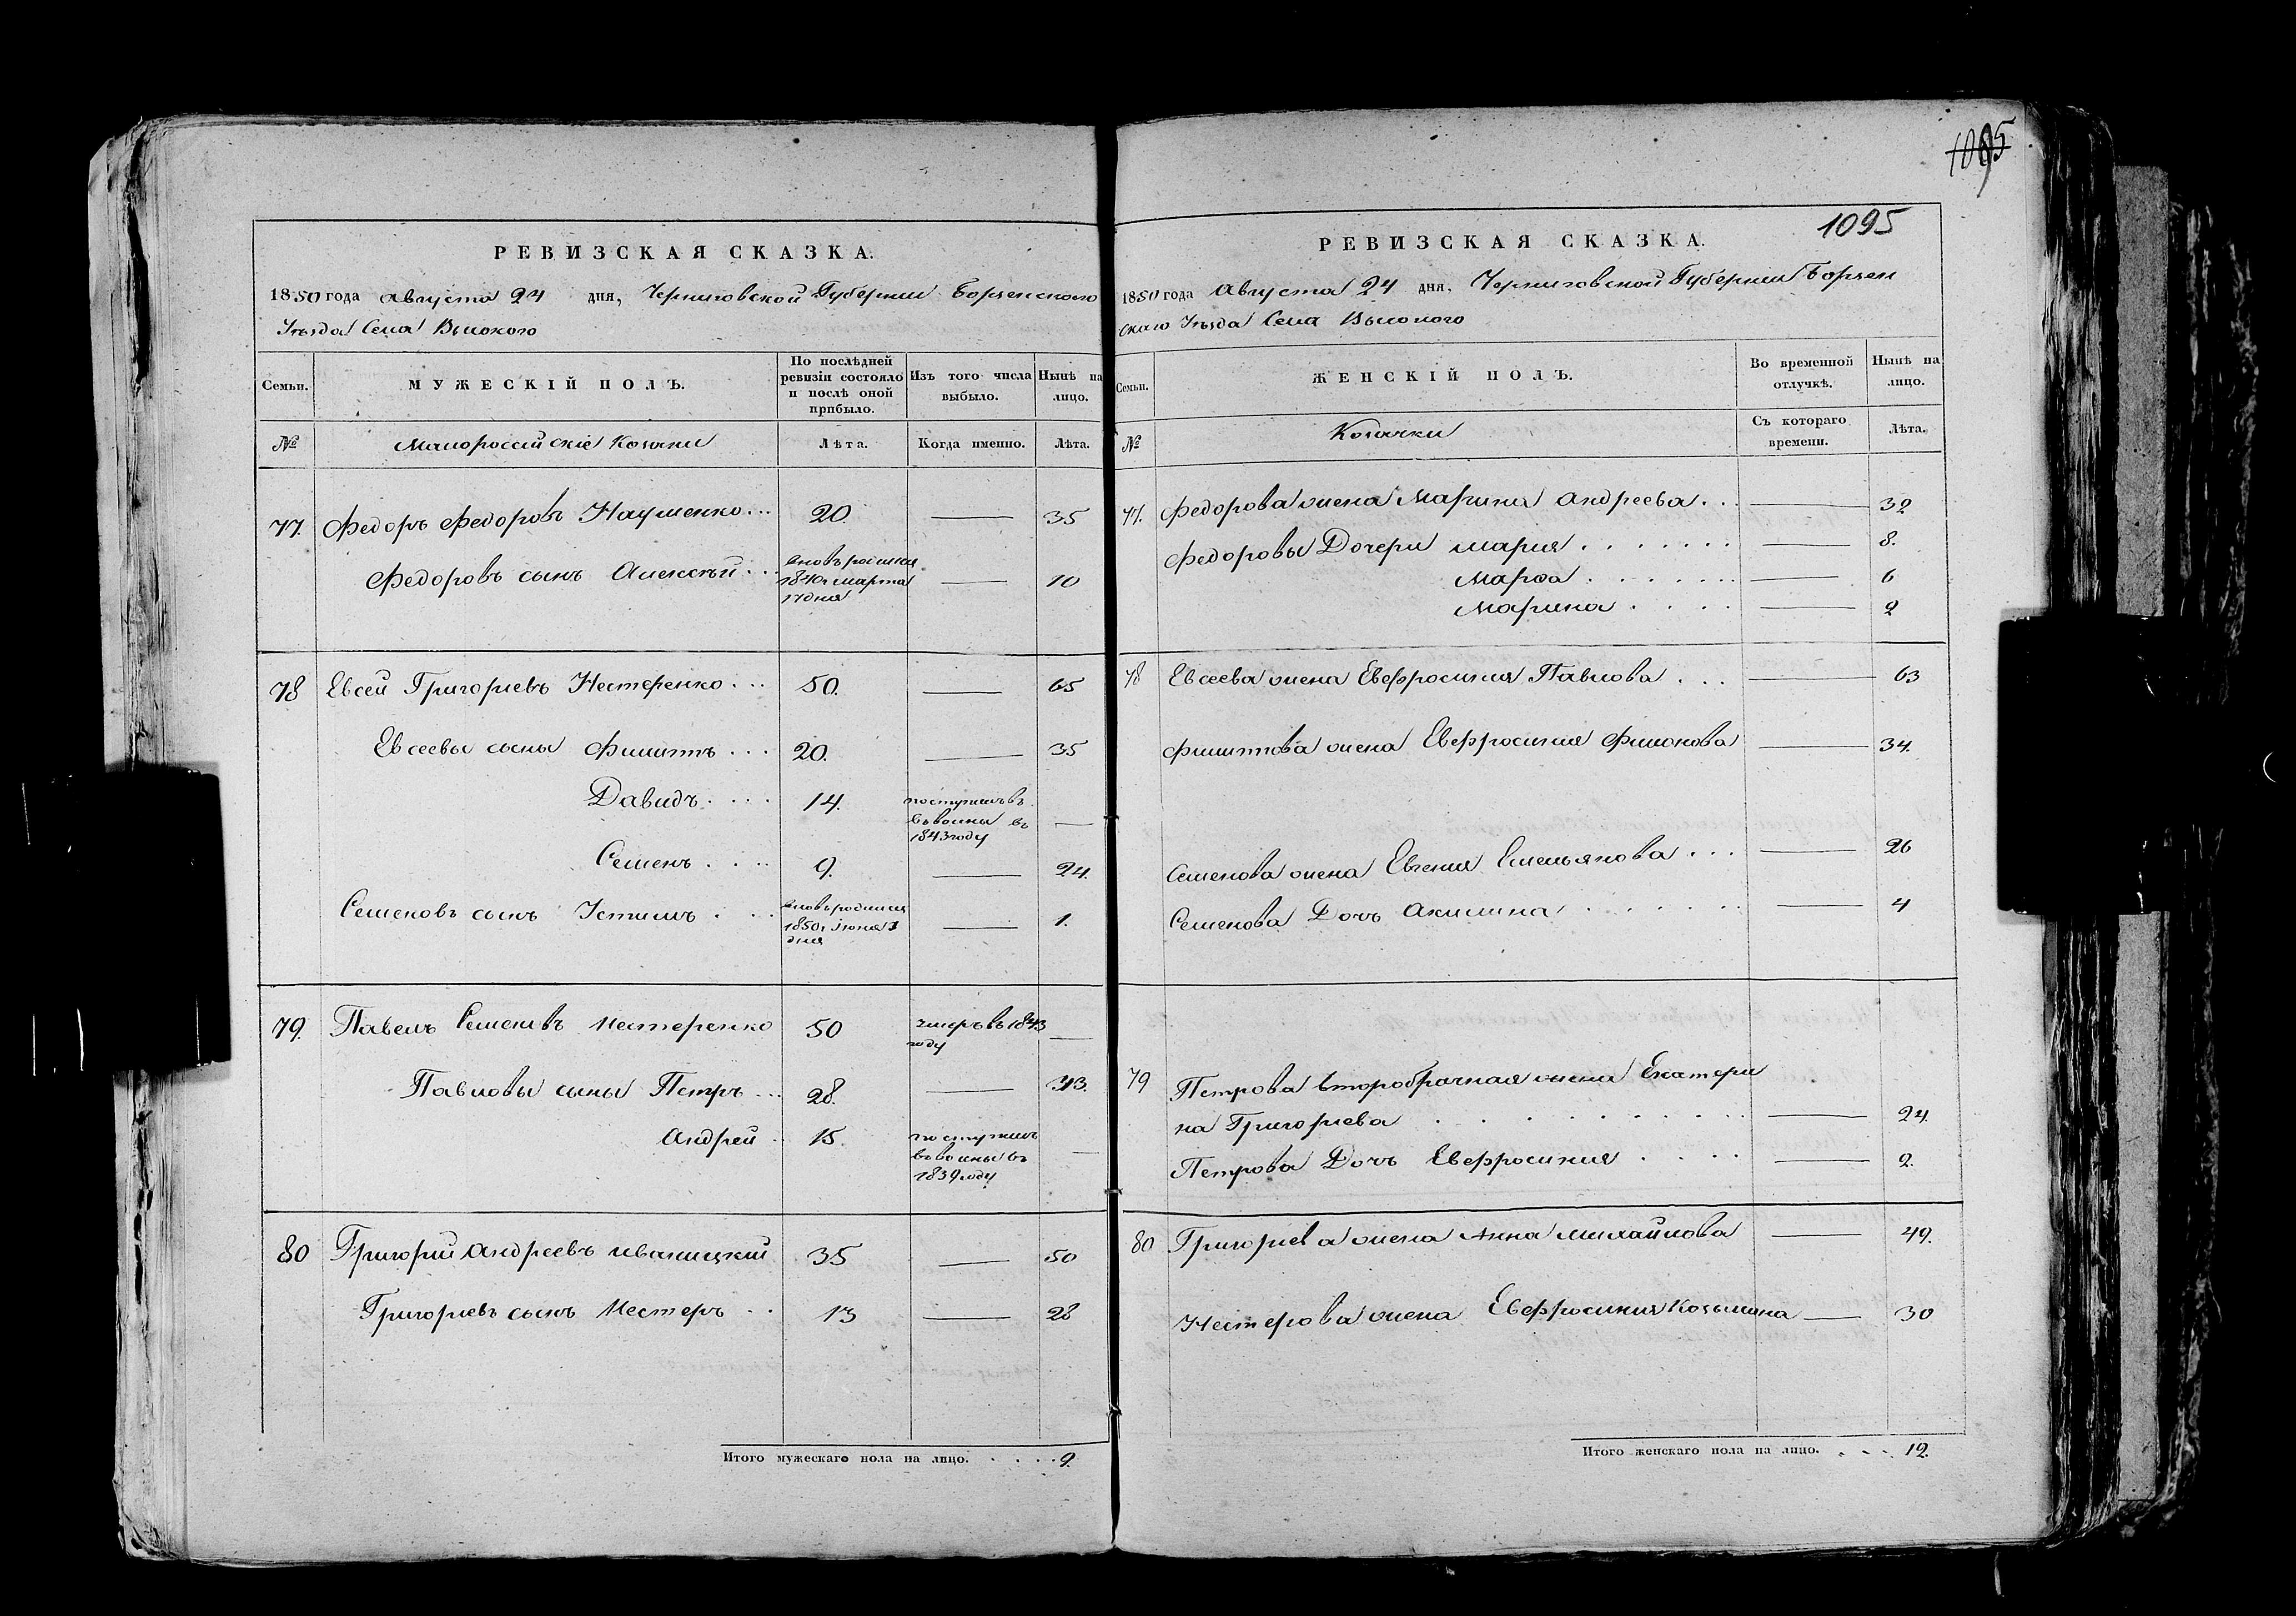 1095
РЕВИЗСКАЯ СКАЗКА.
1850 года августа 24 дня, Черниговской Губернии Борзенского
Уѣзда Села Высокого
Семьи. МУЖЕСКІЙ ПОЛЪ. По послѣдней ревизіи состояло и послѣ оной прибыло. Изъ того числа выбыло. Нынѣ на лицо.
№ Малороссийские Козаки Лѣта. Когда именно. Лѣта.
77. Федоръ Федоровъ Науменко... 20. — 35
Федоровъ сынъ Алексѣй... вновь родился 1840 г марта 17 дня — 10
78 Евсей Григорьевъ Нестеренко... 50. — 65
Евсеевы сыны Филиппъ... 20. — 35
Давидъ.... 14. поступилъ въ
въ воины въ
1843 году —
Семенъ.... 9. — 24.
Семеновъ сынъ Устимъ... вновь родился
1850 г іюня 3
дня — 1.
79. Павелъ Семеновъ Нестеренко 50 умеръ въ 1843
году —
Павловы сыны Петръ... 28. — 43.
Андрей. 15. поступилъ
въ воины въ
1839 году —
80 Григорий Андреевъ Иваницкий 35 — 50
Григорьевъ сынъ Нестеръ.. 13 — 28
Итого мужескаго пола на лицо..... 9.
РЕВИЗСКАЯ СКАЗКА.
1095
1850 года Августа 24 дня, Черниговской Губернии Борзен
скаго Уѣзда Села Высокого
Семьи. ЖЕНСКІЙ ПОЛЪ. Во временной отлучкѣ. Нынѣ на лицо.
№ Козачки Съ котораго времени. Лѣта.
77. Федорова жена Марина Андреева... — 32
Федоровы Дочери Мария....... — 8.
Марфа...... — 6
Марина.... — 2
78 Евсеева жена Евфросиния Павлова... — 63
Филиппова жена Евфросиния Филонова — 34.
Семенова жена Евгения Емельянова... — 26
Семенова Дочь Акилина....... — 4
79 Петрова второбрачная жена Екатери
на Григорьева......... — 24.
Петрова Дочь Евфросиния.... — 2.
80 Григорьева жена Анна Михайлова — 49.
Нестерова жена Евфросиния Козьмина — 30
Итого женскаго пола на лицо.... 12.